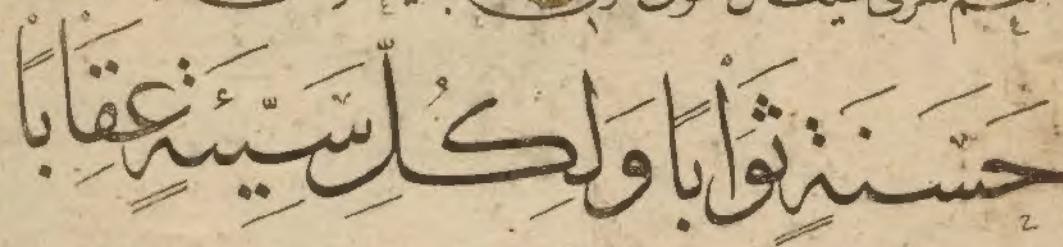 حَسَنَةٍ ثَوَابًا وَلِكُلِّ سَيِّئَةٍ عِقَابًا